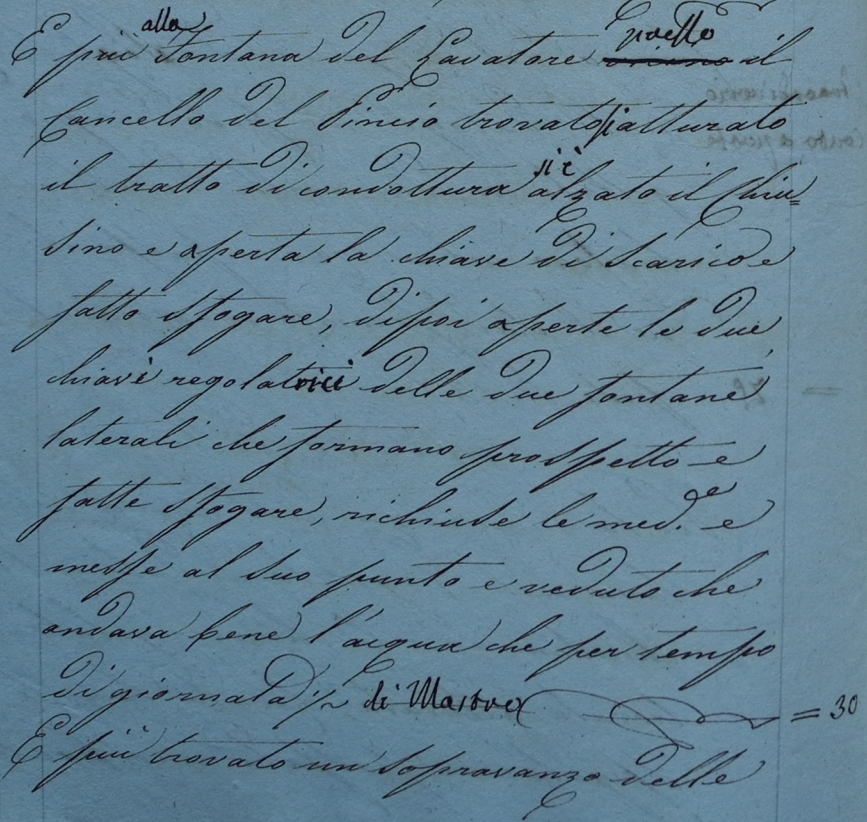 E più alla Fontana del Lavatore presso vicino il
Cancello del Pincio trovato jatturato
il tratto di condottura si è alzato il Chiu=
sino e aperta la chiave di scarico e
fatto sfogare, dipoi aperte le due
chiavi regolatrici delle due fontane
laterali che formano prospetto e
fatte sfogare, richiuse le med.e e
messe al suo punto e veduto che
andava bene l'acqua che per tempo
di giornata 1/2 di Mastro = 30
E più trovato un sopravanzo delle